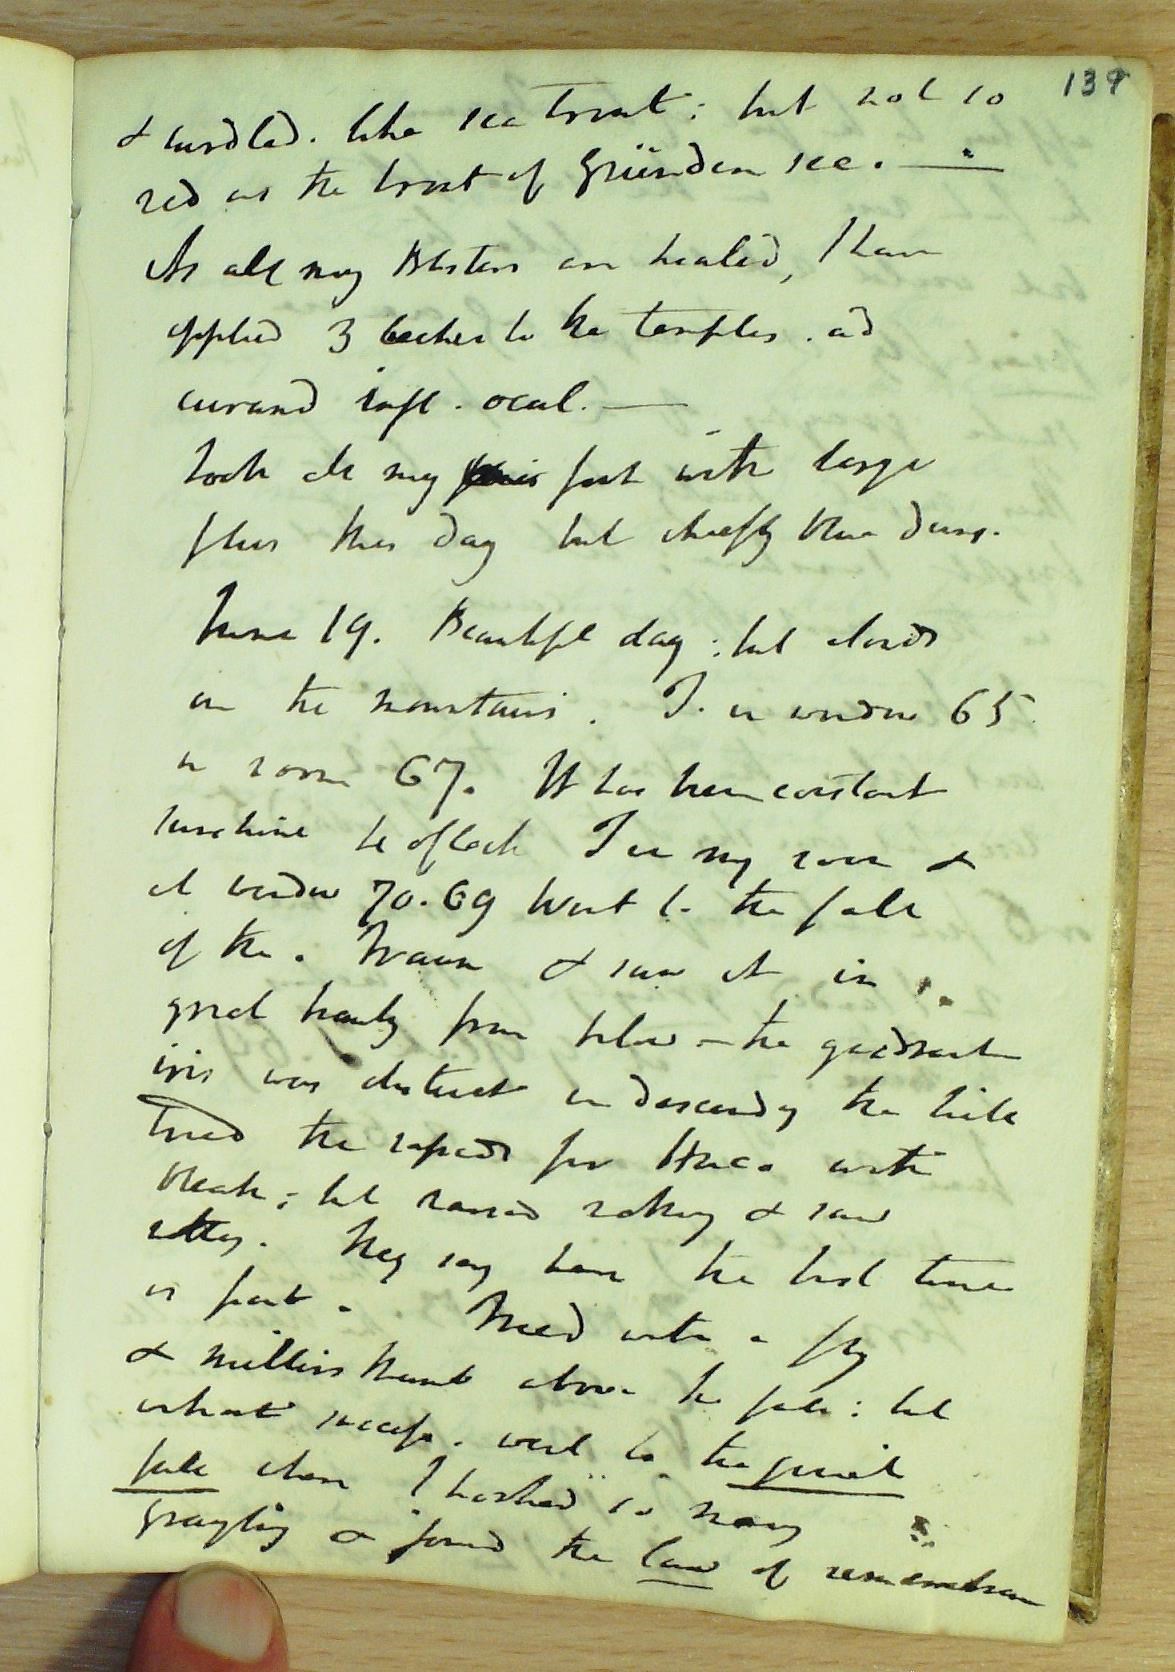 139
& curdled. like sea trout: but not so
red as the trout of Gründen see. —
As all my Blisters are healed, I have
applied 3 leeches to the temples. ad
curand infl. ocul. —
took all my fish with large
flies this day but chiefly blue duns.
June 19. Beautiful day: but clouds
on the mountains. T. in window 65
in room 67. It has been constant
sunshine 12 oClock T in my room &
at window 70.69 Went to the fall
of the. Traun & saw it in
great beauty from below – the quadrant
iris was distinct in descending the hill
Tried the rapids for Huco with
bleak; but raised nothing & saw
nothing. They say here the best time
is past. Tried with a fly
& millers thumb above the fall: but
without success. went to the
fall where I hooked so many
grayling & found the law of remembrance